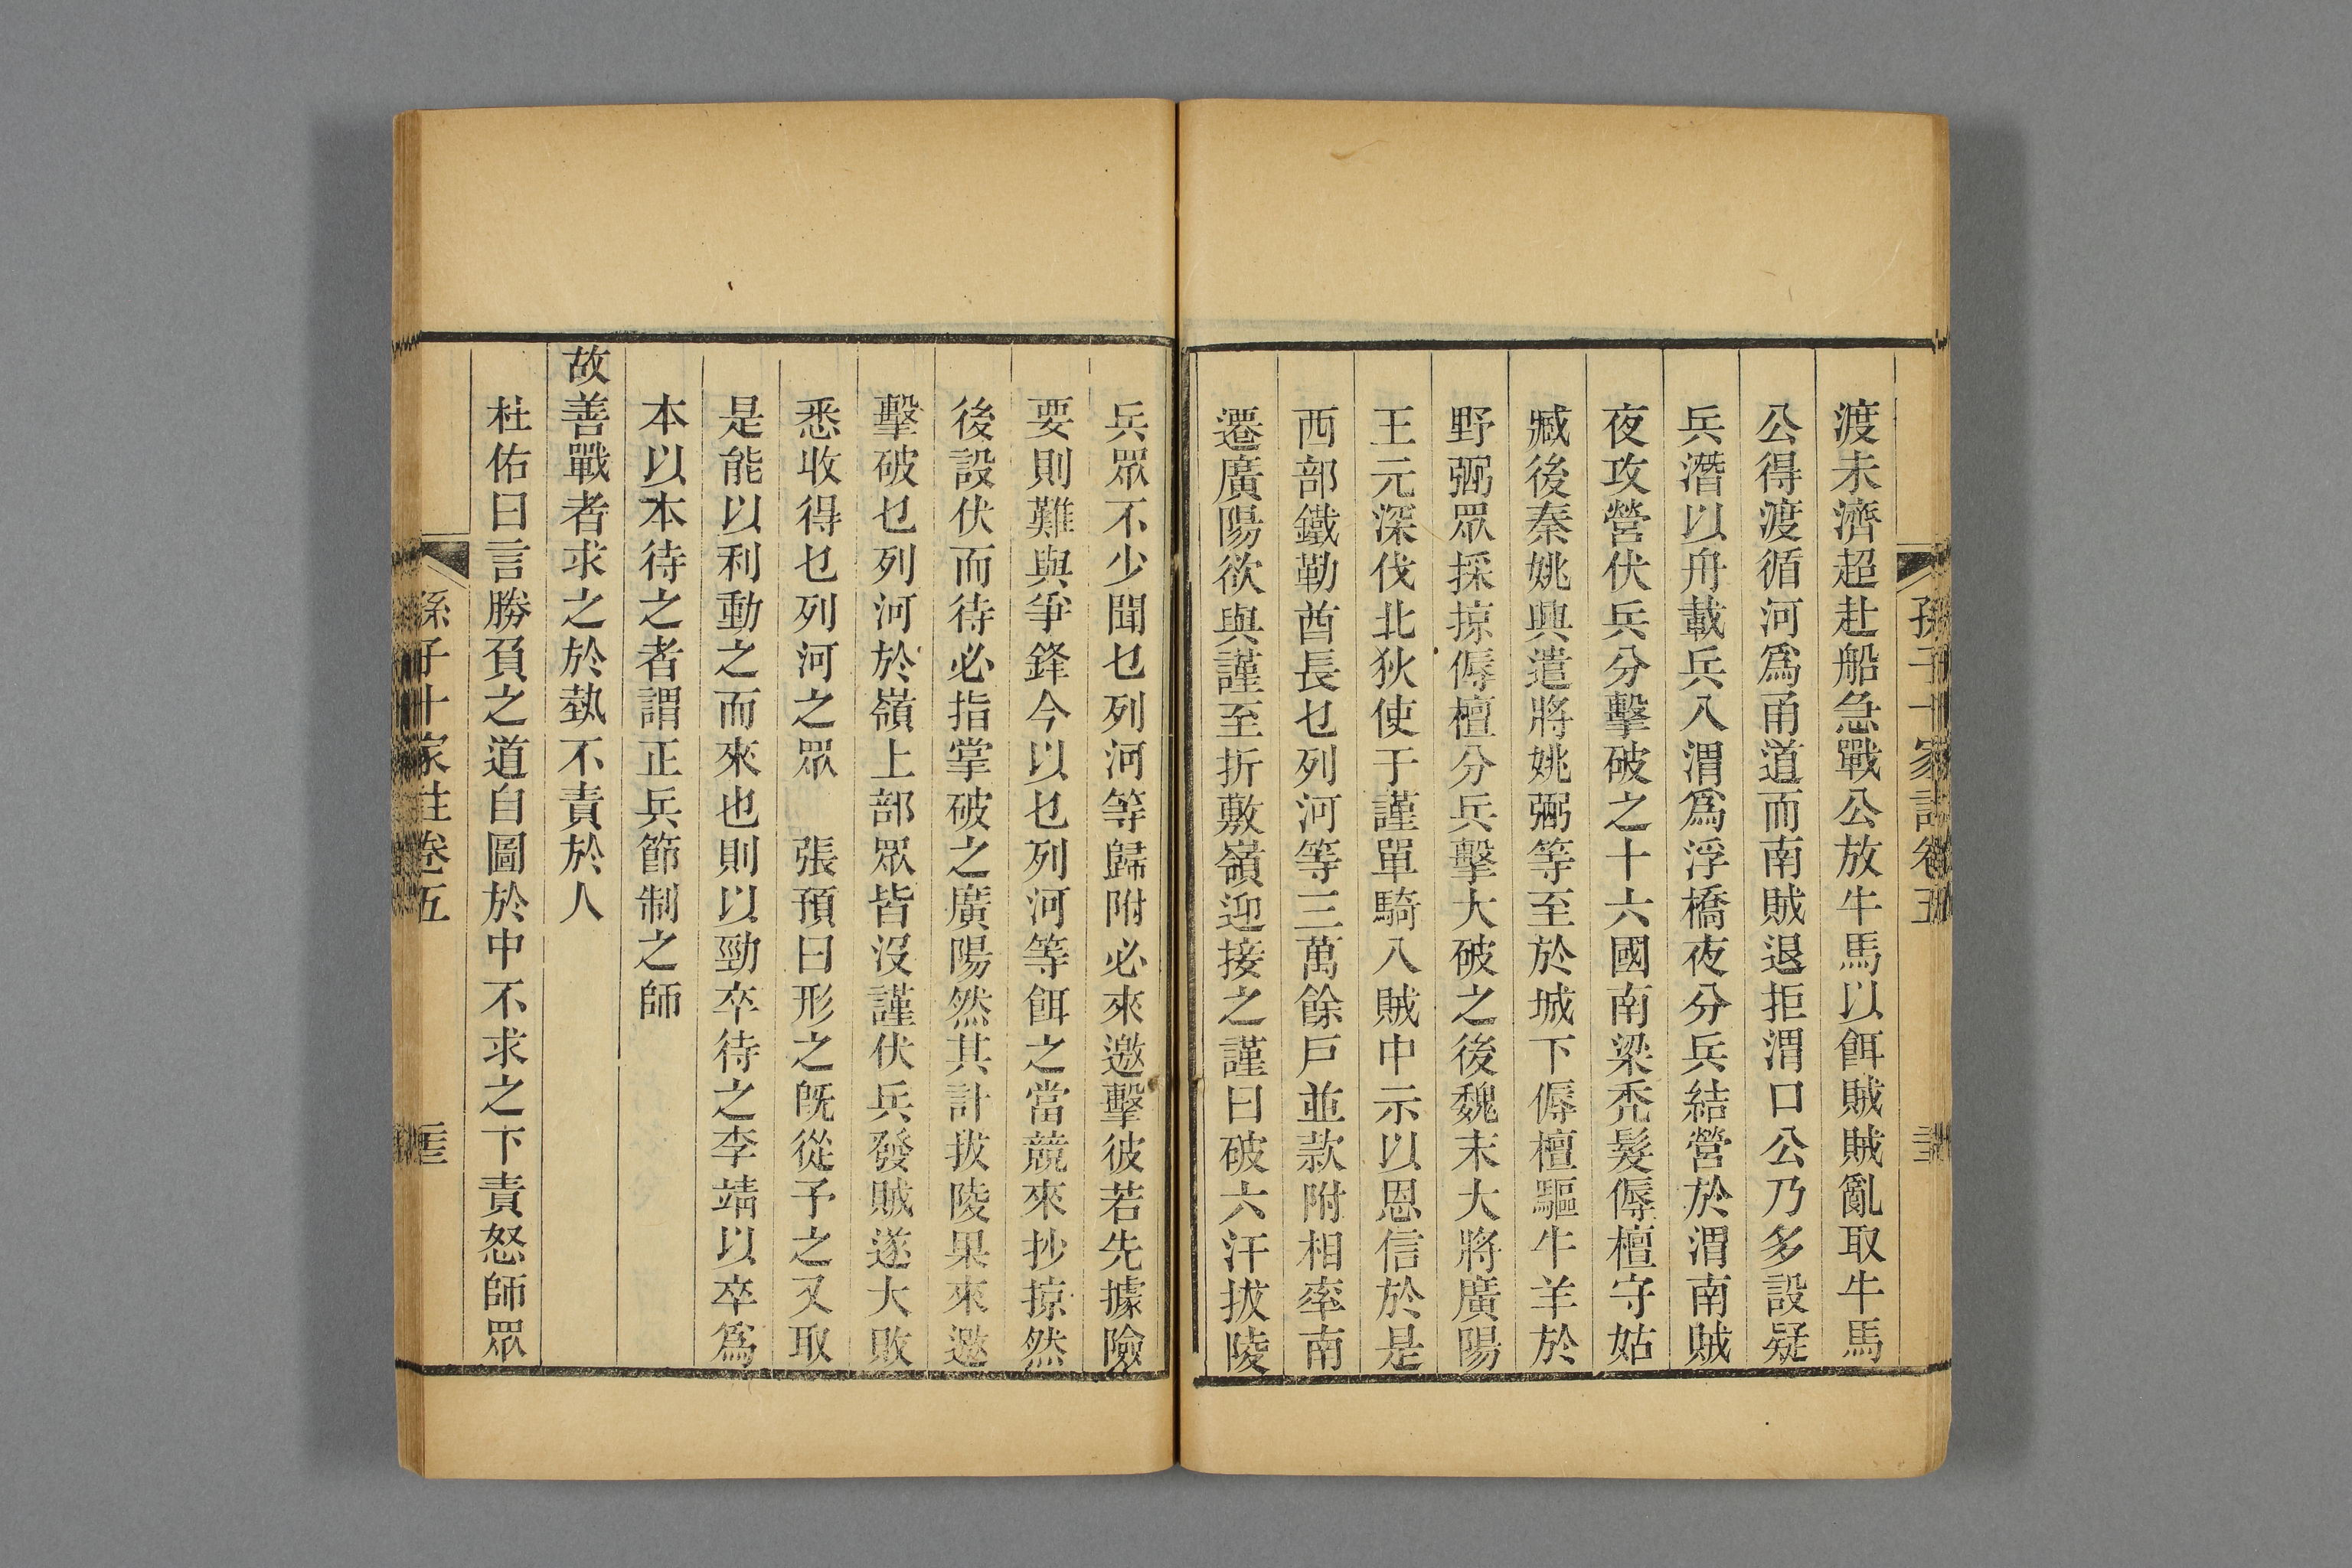 孫子十家註卷五
渡未濟超赴船急戰公放牛馬以餌賊賊亂取牛馬
公得渡循河爲甬道而南賊退拒渭口公乃多設疑
兵潛以舟載兵入渭爲浮橋夜分兵結營於渭南賊
夜攻營伏兵分擊破之十六國南梁禿髮傉檀守姑
臧後秦姚興遣將姚弼等至於城下傉檀驅牛羊於
野弼眾採掠傉檀分兵擊大破之後魏末大將廣陽
王元深伐北狄使于謹單騎入賊中示以恩信於是
西部鐵勒酋長乜列河等三萬餘戶並款附相率南
遷廣陽欲與謹至折敷嶺迎接之謹曰破六汗拔陵
兵眾不少聞乜列河等歸附必來邀擊彼若先據險
要則難與爭鋒今以乜列河等餌之當競來抄掠然
後設伏而待必指掌破之廣陽然其計拔陵果來邀
擊破乜列河於嶺上部眾皆沒謹伏兵發賊遂大敗
悉收得乜列河之眾　張預曰形之旣從予之又取
是能以利動之而來也則以勁卒待之李靖以卒爲
本以本待之者謂正兵節制之師
故善戰者求之於埶不責於人
杜佑曰言勝負之道自圖於中不求之下責怒師眾
孫子十家註卷五